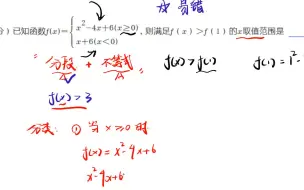 易错
分）已知函数f(x)={x²-4x+6(x≥0)
x+6(x<0)，则满足f（x）>f（1）的x取值范围是
分段 + 不等式 f(x)>f(1) f(1)=1²-
f(x)>3
分类：① 当 x≥0 时
f(x)=x²-4x+6
x²-4x+6